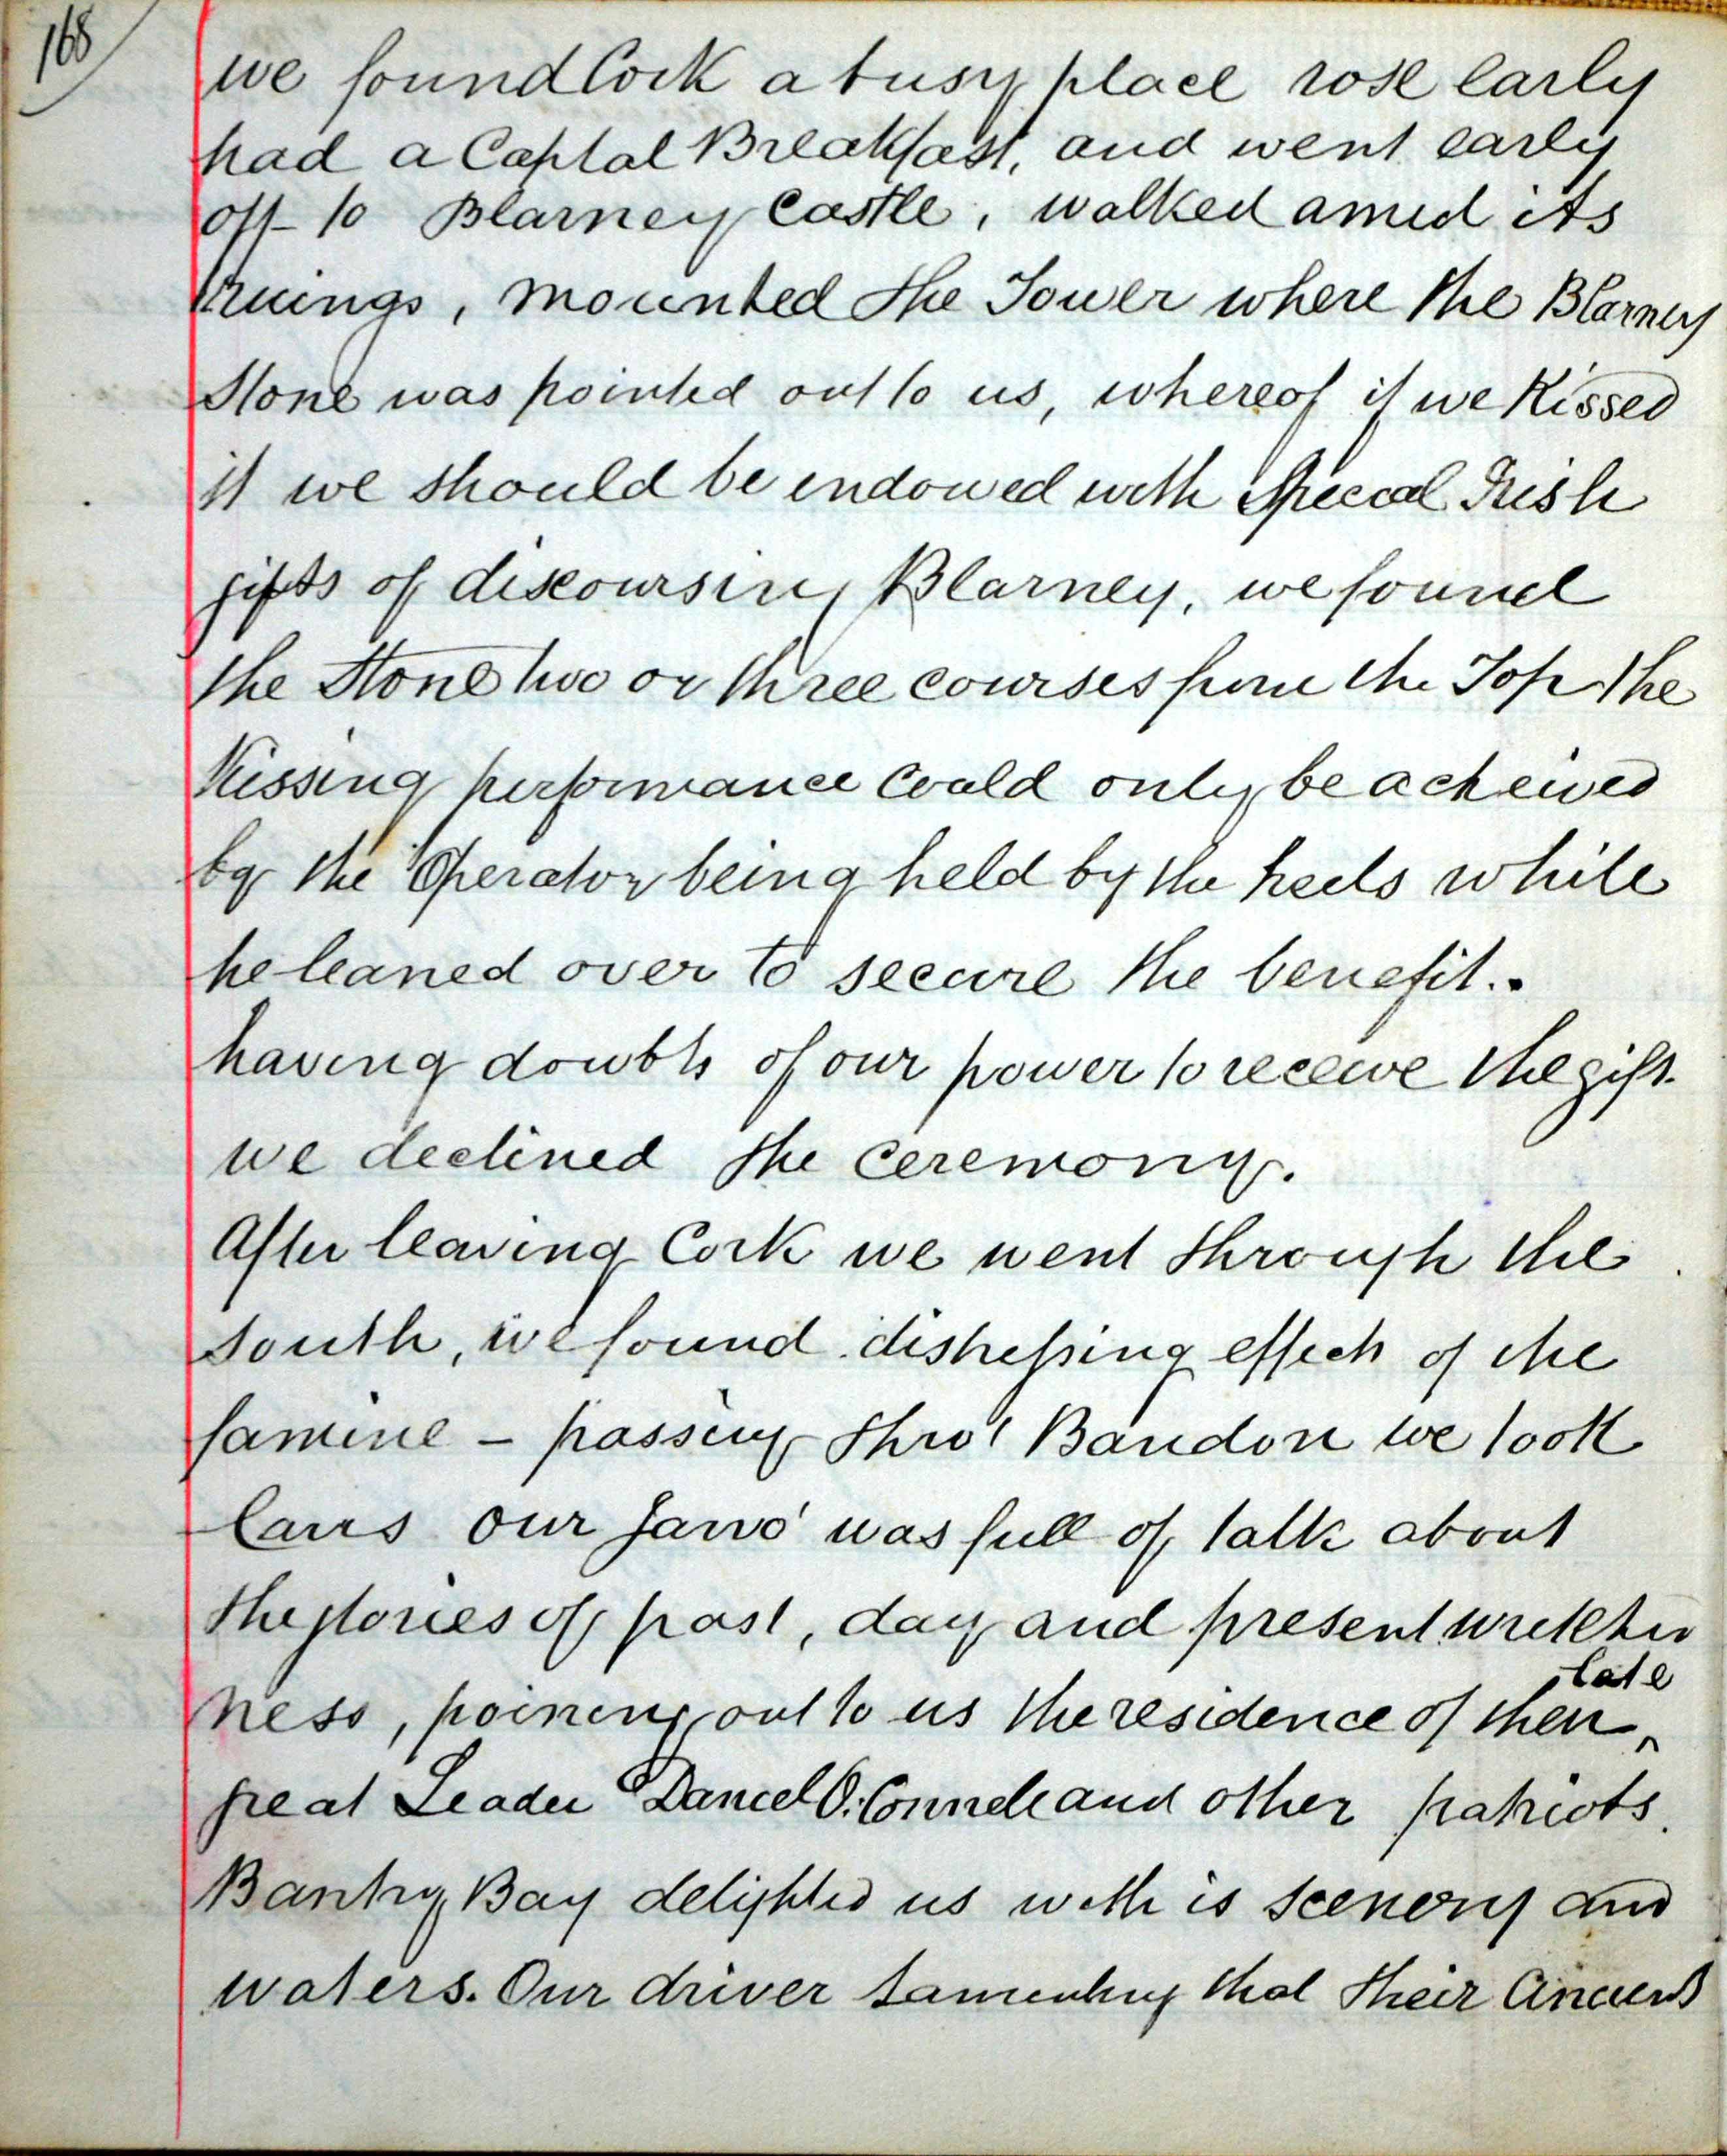 168
we found Cork a busy place rose early
had a Captal Breakfast, and went early
off to Blarney Castle, walked amid its
ruings, mounted the Tower where the Blarney
Stone was pointed out to us, whereof if we Kissed
it we should be endowed with Special Irish
gifts of discoursing Blarney, we found
the Stone two or three courses from the Top the
Kissing performance could only be acheived
by the Operator being held by the heels while
he leaned over to secure the benefit.
having doubts of our power to receive the gift
we declined the ceremony.
After leaving Cork we went through the
South, we found distressing effects of the
famine - passing thro' Bandon we took
Cars our was full of talk about
the glories of past, day and present wretched
ness, poining out to us the residence of their late
great Leader Daniel O'Connell and other patriots.
Bantry Bay delighted us with is scenery and
waters. Our driver lamenting that their Ancient